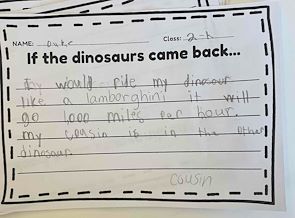 NAME: Class: 2-h
If the dinosaurs came back...
I would ride my dinosour
like a lamborghini it will
go 1,000 miles per hour.
my cousin is in the other
dinosaur.
cousin